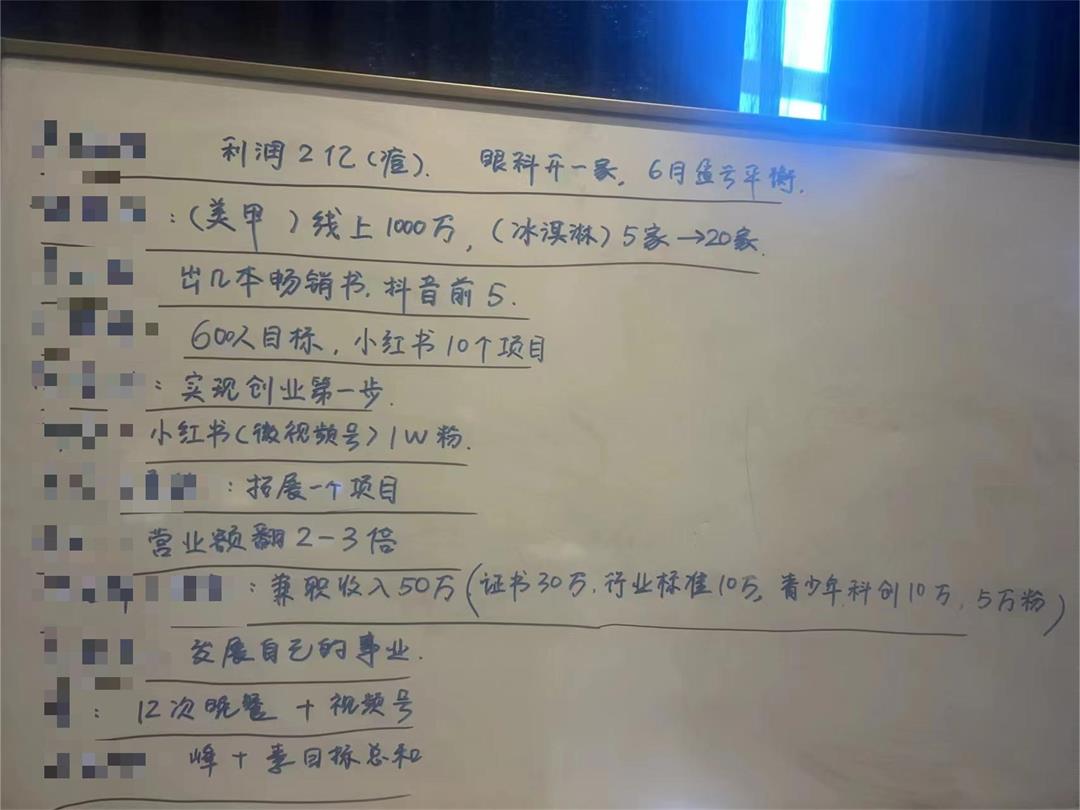 利润2亿(痘). 眼科开一家, 6月盈亏平衡.
:(美甲 )线上1000万,(冰淇淋)5家→20家.
出几本畅销书, 抖音前5.
600人目标, 小红书10个项目
: 实现创业第一步.
小红书(微视频号)1W粉.
: 拓展一个项目
营业额翻2-3倍
: 兼职收入50万(证书30万, 行业标准10万, 青少年科创10万, 5万粉)
发展自己的事业.
: 12次晚餐 + 视频号
峰 + 李目标总和